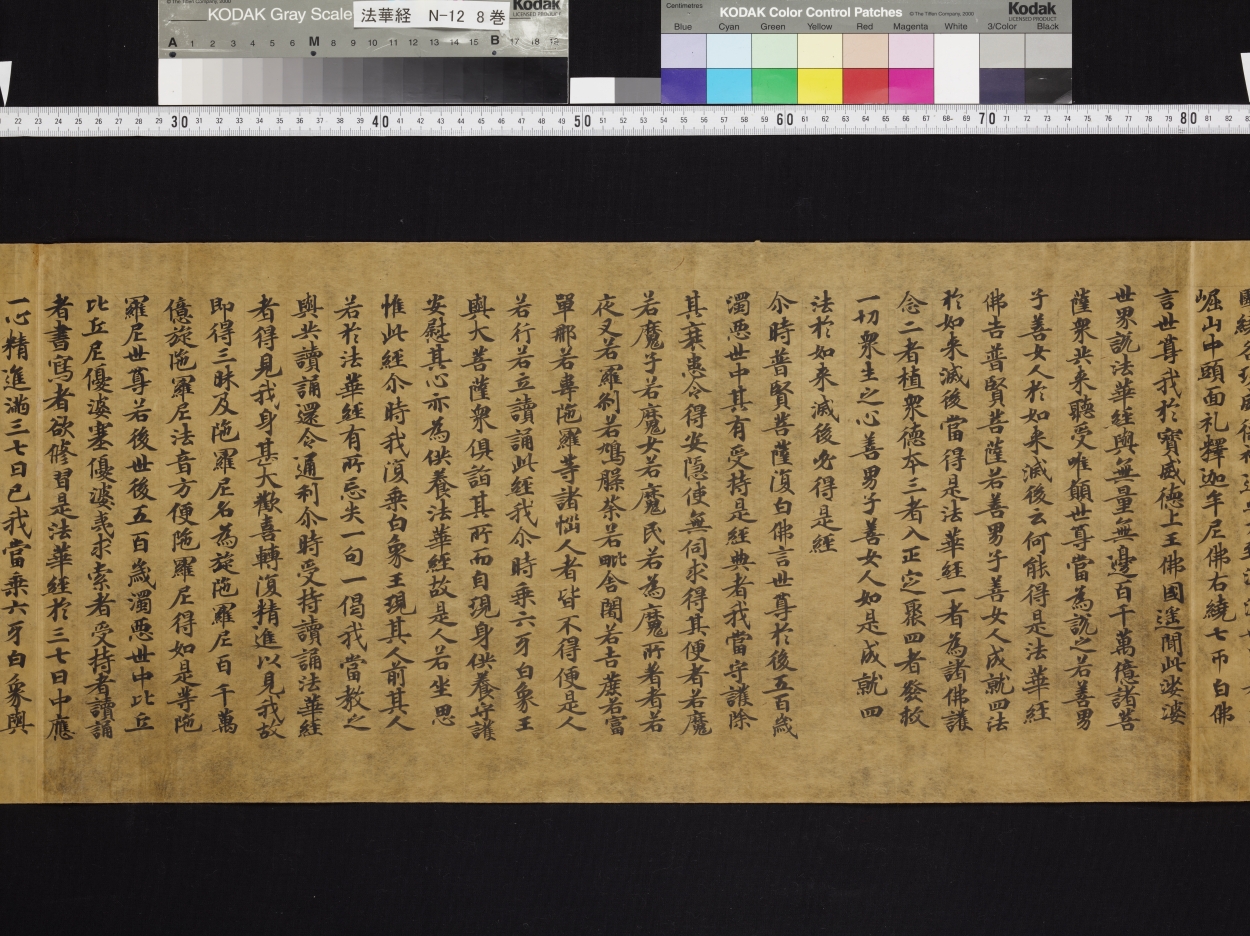 © The Tiffen Company, 2000
KODAK Gray Scale
法華経 N-12 8巻
Kodak
LICENSED PRODUCT
A 1 2 3 4 5 6 M 8 9 10 11 12 13 14 15 B 17 18 19
Centimetres
KODAK Color Control Patches
© The Tiffen Company, 2000
Kodak
LICENSED PRODUCT
Blue Cyan Green Yellow Red Magenta White 3/Color Black
22 23 24 25 26 27 28 29 30 31 32 33 34 35 36 37 38 39 40 41 42 43 44 45 46 47 48 49 50 51 52 53 54 55 56 57 58 59 60 61 62 63 64 65 66 67 68 69 70 71 72 73 74 75 76 77 78 79 80 81 82
崛山中頭面礼釋迦牟尼佛右繞七帀白佛
言世尊我於寶威德上王佛國遙聞此娑婆
世界說法華經與無量無邊百千萬億諸菩
薩衆共来聽受唯願世尊當為說之若善男
子善女人於如来滅後云何能得是法華經
佛告普賢菩薩若善男子善女人成就四法
於如来滅後當得是法華經一者為諸佛護
念二者植衆德夲三者入正定聚四者發救
一切衆生之心善男子善女人如是成就四
法於如来滅後必得是經
尒時普賢菩薩復白佛言世尊於後五百歲
濁惡世中其有受持是經典者我當守護除
其衰患令得安隱使無伺求得其便者若魔
若魔子若魔女若魔民若為魔所著者若
夜叉若羅剎若鳩槃荼若毗舍闍若吉蔗若富
單那若韋陁羅等諸惱人者皆不得便是人
若行若立讀誦此經我尒時乗六牙白象王
與大菩薩衆俱詣其所而自現身供養守護
安慰其心亦為供養法華經故是人若坐思
惟此經尒時我復乗白象王現其人前其人
若於法華經有所忘失一句一偈我當教之
與共讀誦還令通利尒時受持讀誦法華經
者得見我身甚大歡喜轉復精進以見我故
即得三昧及陁羅尼名為旋陁羅尼百千萬
億旋陁羅尼法音方便陁羅尼得如是等陁
羅尼世尊若後世後五百歲濁惡世中比丘
比丘尼優婆塞優婆夷求索者受持者讀誦
者書寫者欲修習是法華經於三七日中應
一心精進滿三七日已我當乗六牙白象與